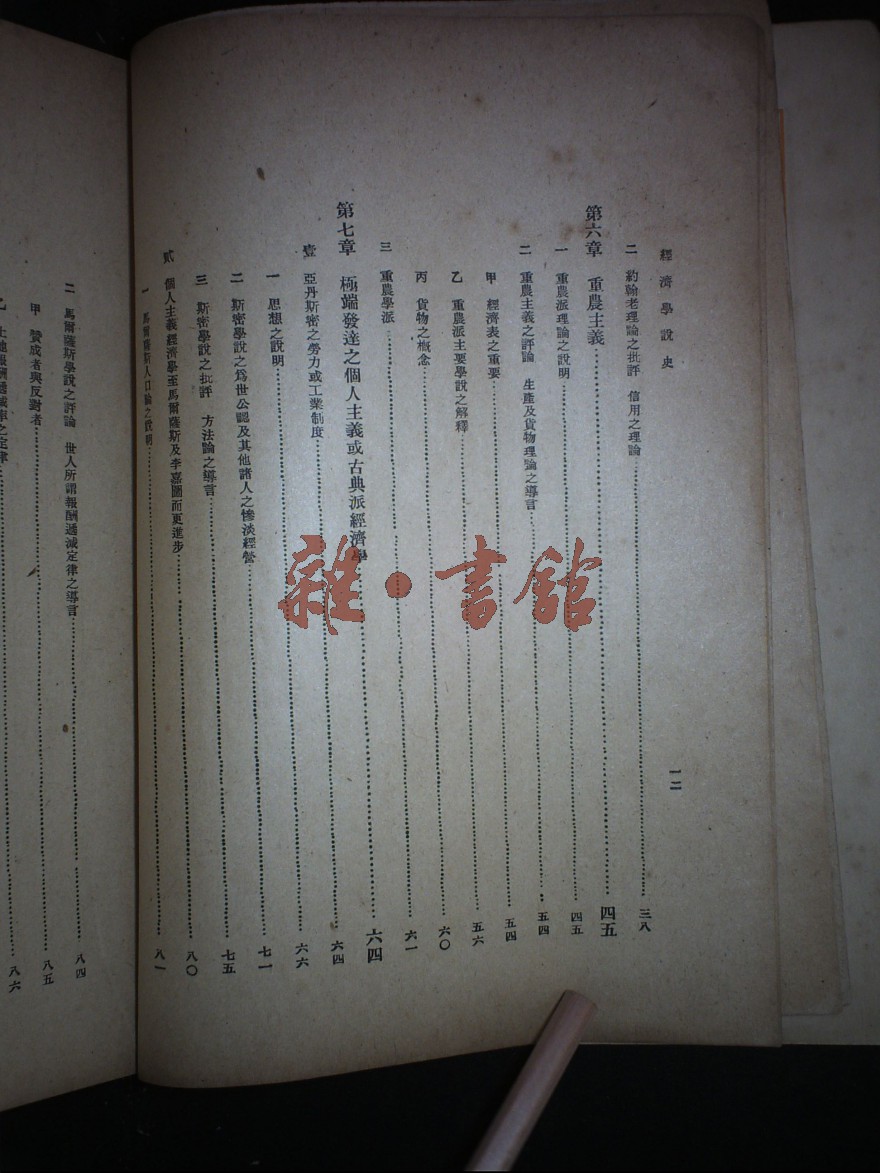 經濟學說史 一二
二 約翰老理論之批評 信用之理論……三八
第六章 重農主義……四五
一 重農派理論之說明……四五
二 重農主義之評論 生產及貨物理論之導言……五四
甲 經濟表之重要……五四
乙 重農派主要學說之解釋……五六
丙 貨物之概念……六〇
三 重農學派……六一
第七章 極端發達之個人主義或古典派經濟學……六四
壹 亞丹斯密之勞力或工業制度……六四
一 思想之說明……六六
二 斯密學說之爲世公認及其他諸人之慘淡經營……七一
三 斯密學說之批評 方法論之導言……七五
貳 個人主義經濟學至馬爾薩斯及李嘉圖而更進步……八〇
一 馬爾薩斯人口論之說明……八一
二 馬爾薩斯學說之評論 世人所謂報酬遞減定律之導言……八四
甲 贊成者與反對者……八五
乙 土地報酬遞減率之定律……八六
雜·書館